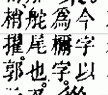 今字以
為檷字
舵尾也
梢擢郭